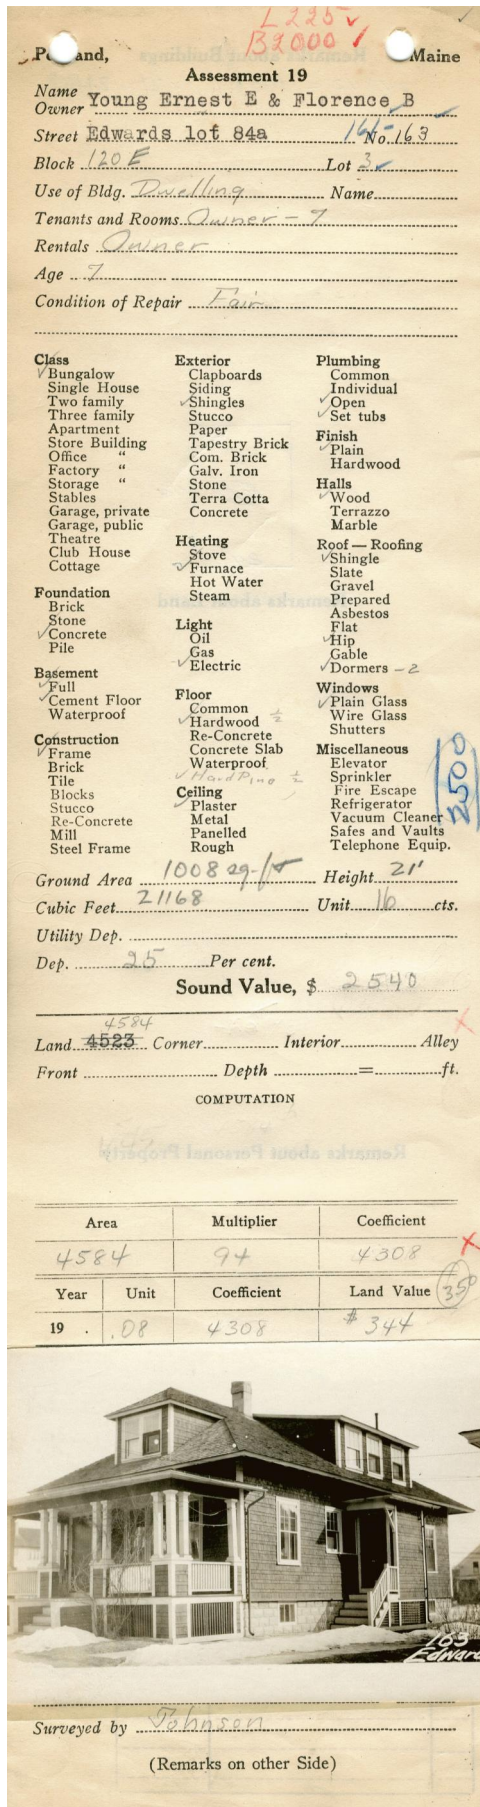 L 225 ✓
B 2000 ✓
Portland, Maine
Assessment 19
Name
Owner Young Ernest E & Florence B
Street Edwards lot 84a 161- No. 163
Block 120 E Lot 3
Use of Bldg. Dwelling Name
Tenants and Rooms Owner - 7
Rentals Owner
Age 7
Condition of Repair Fair
Class
✓ Bungalow
Single House
Two family
Three family
Apartment
Store Building
Office "
Factory "
Storage "
Stables
Garage, private
Garage, public
Theatre
Club House
Cottage
Foundation
Brick
Stone
✓ Concrete
Pile
Basement
✓ Full
✓ Cement Floor
Waterproof
Construction
✓ Frame
Brick
Tile
Blocks
Stucco
Re-Concrete
Mill
Steel Frame
Exterior
Clapboards
Siding
✓ Shingles
Stucco
Paper
Tapestry Brick
Com. Brick
Galv. Iron
Stone
Terra Cotta
Concrete
Heating
Stove
✓ Furnace
Hot Water
Steam
Light
Oil
Gas
✓ Electric
Floor
Common 1/2
✓ Hardwood
Re-Concrete
Concrete Slab
Waterproof
✓ Hard Pine 1/2
Ceiling
✓ Plaster
Metal
Panelled
Rough
Plumbing
Common
Individual
✓ Open
✓ Set tubs
Finish
✓ Plain
Hardwood
Halls
✓ Wood
Terrazzo
Marble
Roof — Roofing
✓ Shingle
Slate
Gravel
Prepared
Asbestos
Flat
✓ Hip
Gable
✓ Dormers - 2
Windows
✓ Plain Glass
Wire Glass
Shutters
Miscellaneous
Elevator
Sprinkler
Fire Escape
Refrigerator
Vacuum Cleaner
Safes and Vaults
Telephone Equip.
2500
Ground Area 1008 sq-ft Height 21'
Cubic Feet 21168 Unit 16 cts.
Utility Dep.
Dep. 25 Per cent.
Sound Value, $ 2540
4584
Land 4523 Corner Interior Alley
Front Depth = ft.
COMPUTATION
Area Multiplier Coefficient
4584 94 4308
Year Unit Coefficient Land Value 350
19 . .08 4308 $ 344
163
Edward
Surveyed by Johnson
(Remarks on other Side)